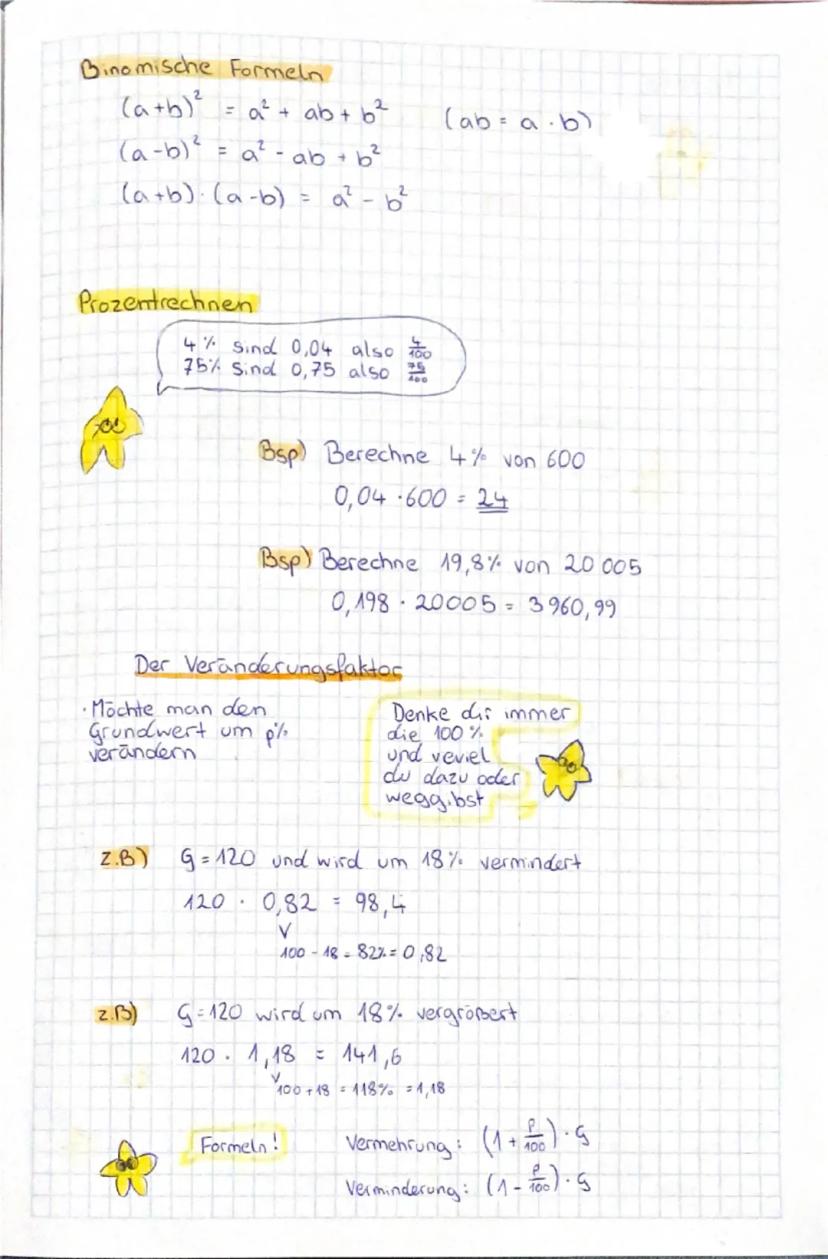 Binomische Formeln
(a+b)² = a² + ab + b² (ab = a · b)
(a-b)² = a² - ab + b²
(a+b) · (a-b) = a² - b²
Prozentrechnen
4% sind 0,04 also 4/100
75% sind 0,75 also 75/100
Bsp) Berechne 4% von 600
0,04 · 600 = 24
Bsp) Berechne 19,8% von 20 005
0,198 · 20005 = 3960,99
Der Veränderungsfaktor
· Möchte man den
Grundwert um p%
verändern
Denke dir immer
die 100%
und veviel
du dazu oder
weggibst
z.B) G = 120 und wird um 18% vermindert
120 · 0,82 = 98,4
100 - 18 = 82% = 0,82
z.B) G = 120 wird um 18% vergrößert
120 · 1,18 = 141,6
100 + 18 = 118% = 1,18
Formeln!
Vermehrung: (1 + p/100) · G
Verminderung: (1 - p/100) · G